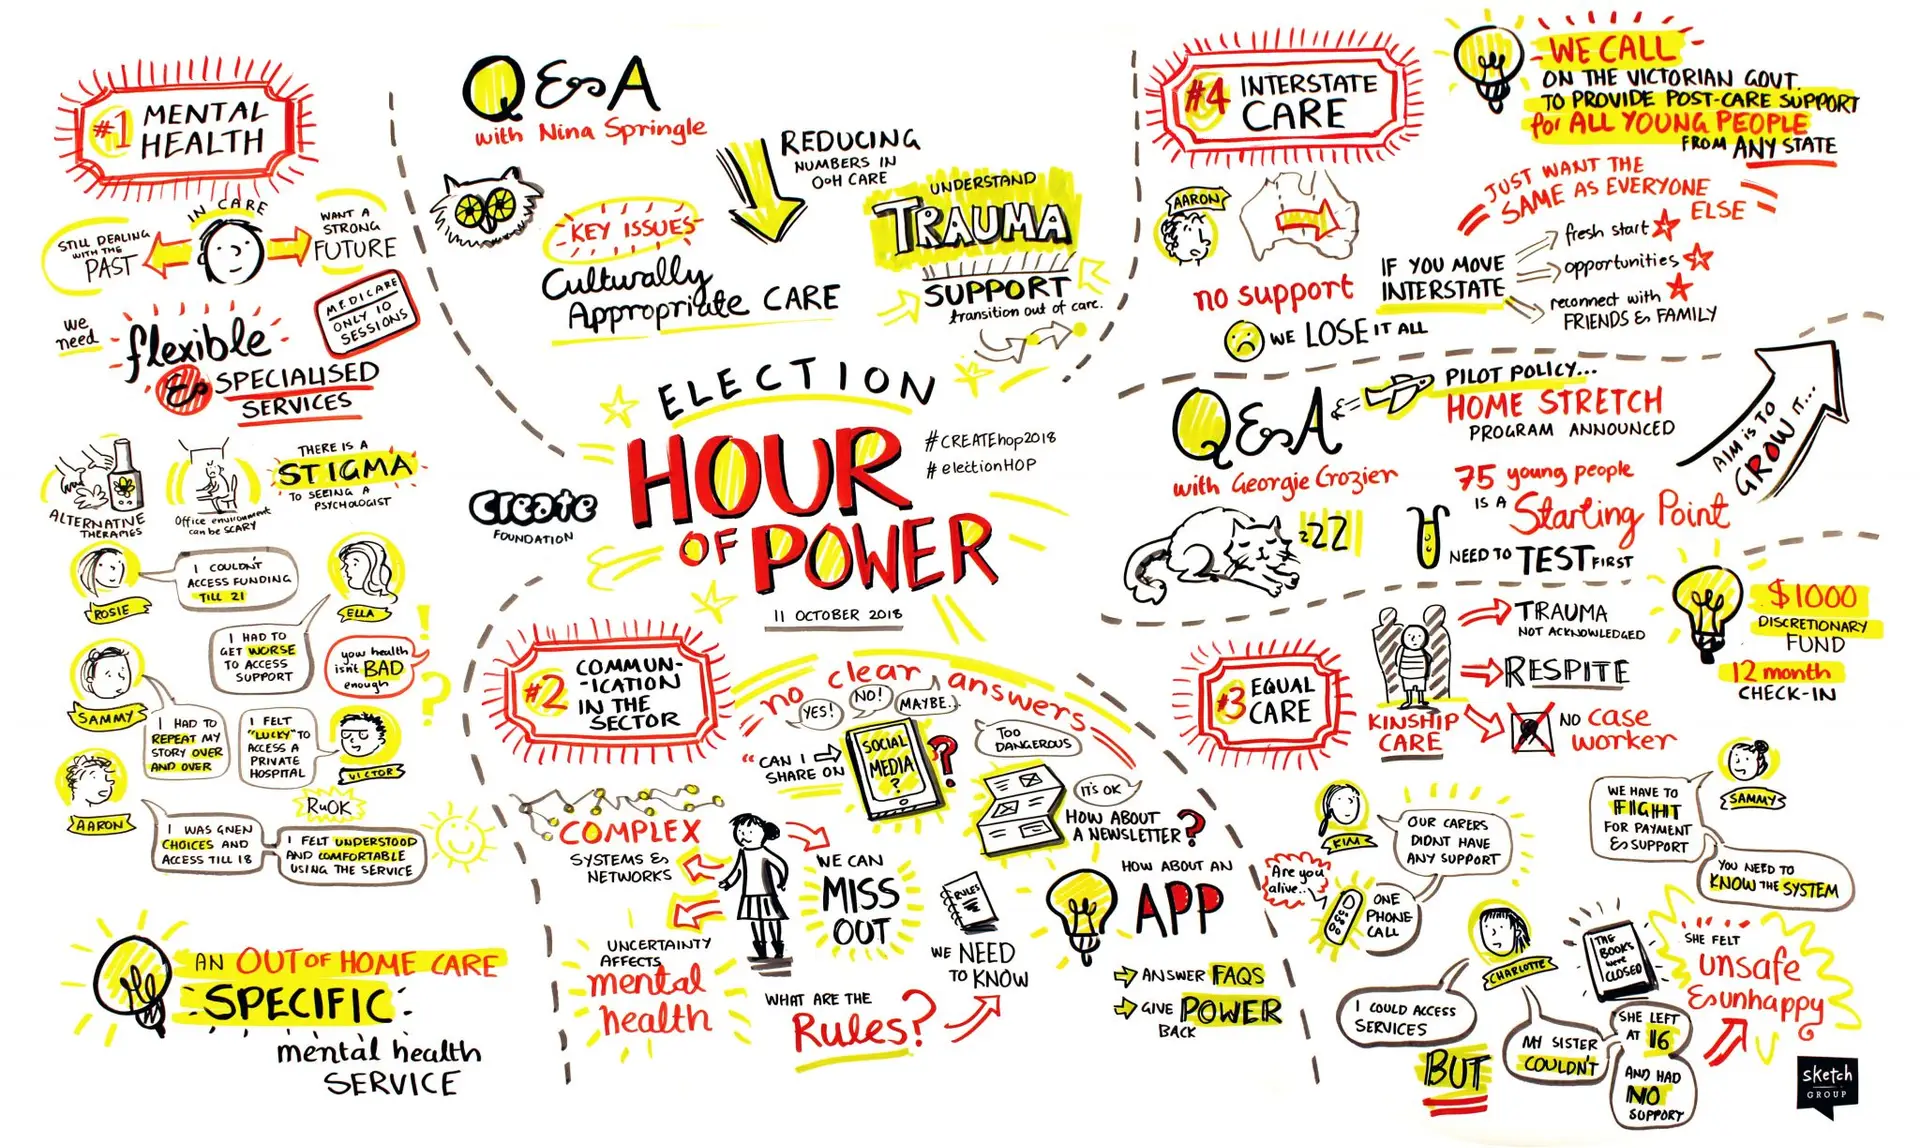 #1 MENTAL
HEALTH
IN CARE
STILL DEALING
WITH THE
PAST
WANT A
STRONG
FUTURE
MEDICARE
ONLY 10
SESSIONS
we
need
flexible
& SPECIALISED
SERVICES
ALTERNATIVE
THERAPIES
Office environment
can be SCARY
THERE IS A
STIGMA
TO SEEING A
PSYCHOLOGIST
ROSIE
I COULDN'T
ACCESS FUNDING
TILL 21
ELLA
I HAD TO
GET WORSE
TO ACCESS
SUPPORT
your health
isn't BAD
enough
!
?
SAMMY
I HAD TO
REPEAT MY
STORY OVER
AND OVER
I FELT
"LUCKY" TO
ACCESS A
PRIVATE
HOSPITAL
VICTOR
RUOK
AARON
I WAS GIVEN
CHOICES AND
ACCESS TILL 18
I FELT UNDERSTOOD
AND COMFORTABLE
USING THE SERVICE
AN OUT OF HOME CARE
SPECIFIC
mental health
SERVICE
Q & A
with Nina Springle
KEY ISSUES
Culturally
Appropriate CARE
REDUCING
NUMBERS IN
OOH CARE
UNDERSTAND
TRAUMA
SUPPORT
transition out of care.
ELECTION
HOUR
OF POWER
#CREATEhop2018
#electionHOP
Create
FOUNDATION
11 OCTOBER 2018
#2 COMMUN-
-ICATION
IN THE
SECTOR
no clear answers
YES!
NO!
MAYBE..
"CAN I
SHARE ON
SOCIAL
MEDIA
?
?
TOO
DANGEROUS
IT'S OK
HOW ABOUT
A NEWSLETTER?
COMPLEX
SYSTEMS &
NETWORKS
UNCERTAINTY
AFFECTS
mental
health
WE CAN
MISS
OUT
RULES
WE NEED
TO KNOW
WHAT ARE THE
Rules?
HOW ABOUT AN
APP
ANSWER FAQS
GIVE POWER
BACK
#4 INTERSTATE
CARE
WE CALL
ON THE VICTORIAN GOVT.
TO PROVIDE POST-CARE SUPPORT
for ALL YOUNG PEOPLE
FROM ANY STATE
AARON
no support
WE LOSE IT ALL
JUST WANT THE
SAME AS EVERYONE
ELSE
IF YOU MOVE
INTERSTATE
fresh start
opportunities
reconnect with
FRIENDS & FAMILY
Q & A
with Georgie Crozier
PILOT POLICY...
HOME STRETCH
PROGRAM ANNOUNCED
75 young people
IS A Starting Point
NEED TO TEST FIRST
AIM IS TO
GROW IT...
ZZZ
#3 EQUAL
CARE
KINSHIP
CARE
TRAUMA
NOT ACKNOWLEDGED
RESPITE
NO CASE
worker
$1000
DISCRETIONARY
FUND
12 month
CHECK-IN
KIM
OUR CARERS
DIDN'T HAVE
ANY SUPPORT
Are you
alive..
ONE
PHONE
CALL
SAMMY
WE HAVE TO
FIGHT
FOR PAYMENT
& SUPPORT
YOU NEED TO
KNOW THE SYSTEM
CHARLOTTE
I COULD ACCESS
SERVICES
BUT
MY SISTER
COULDN'T
THE
BOOKS
WERE
CLOSED
SHE LEFT
AT 16
AND HAD
NO
SUPPORT
SHE FELT
unsafe
& unhappy
sketch
GROUP